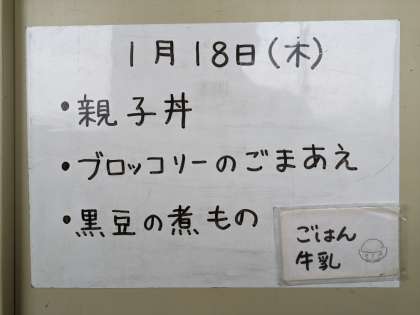 1月18日(木)
・親子丼
・ブロッコリーのごまあえ
・黒豆の煮もの
ごはん
牛乳